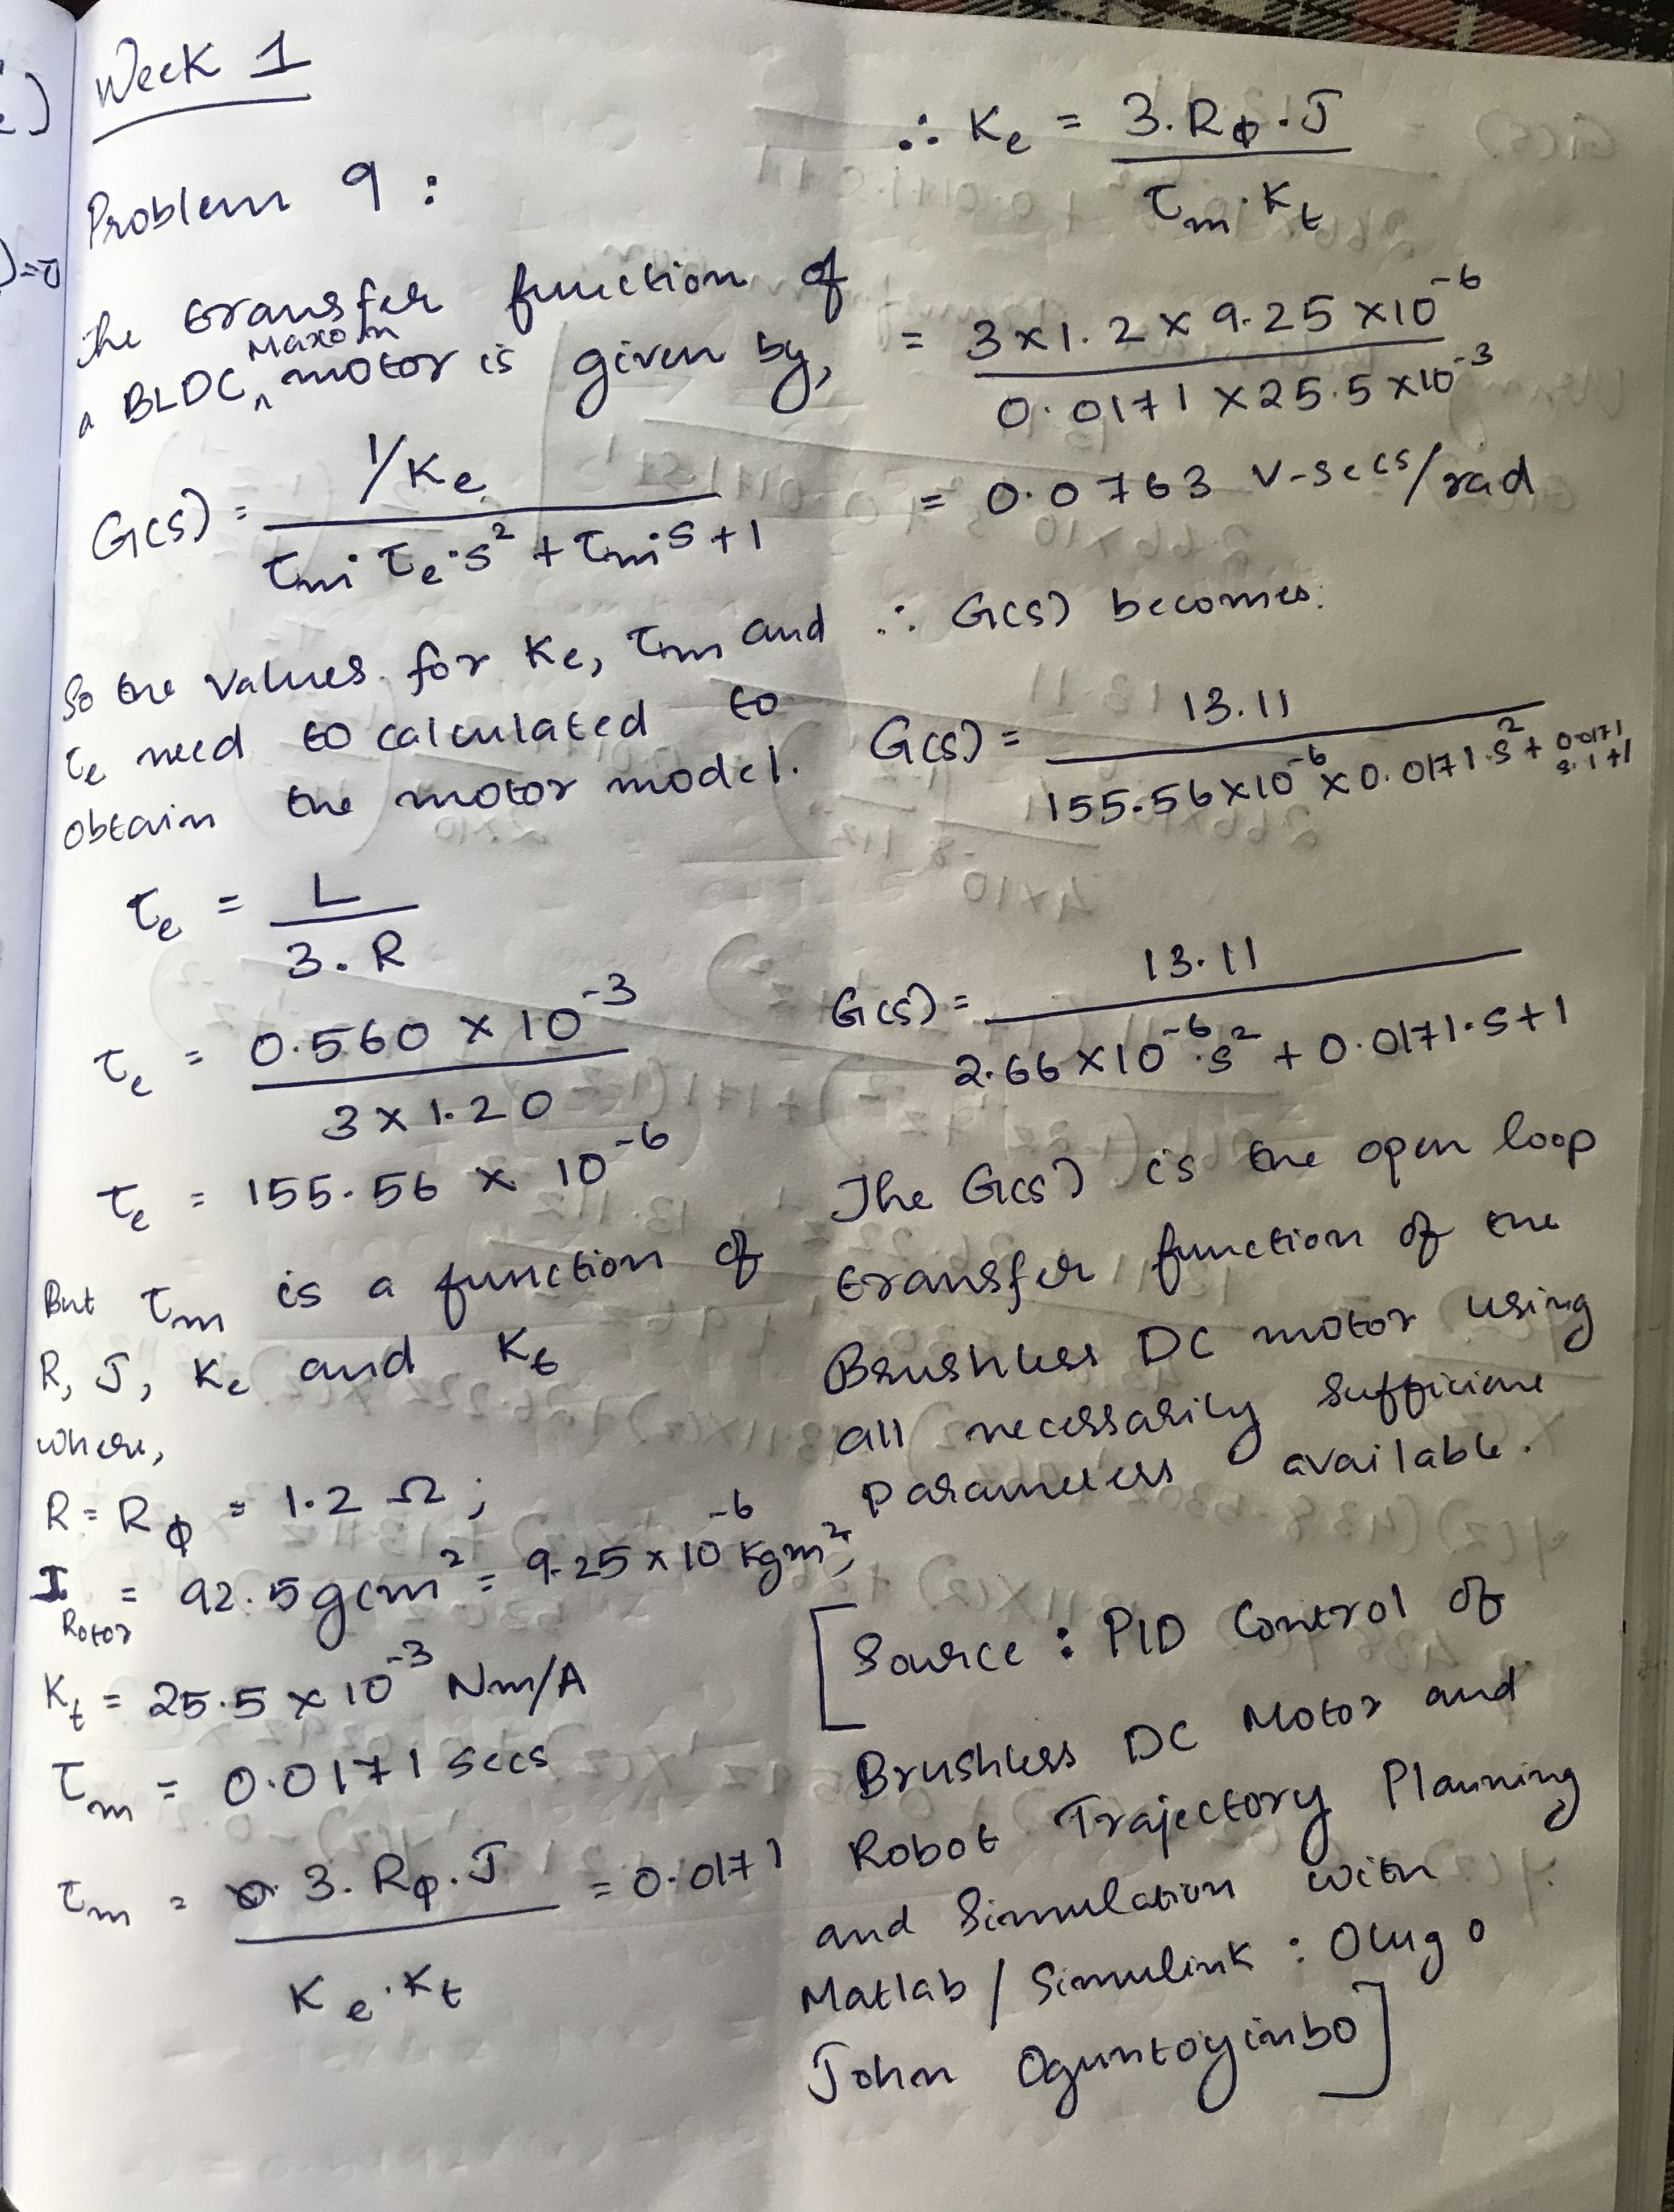 Week 1
Problem 9 :
The transfer function of
a BLDC ^ Maxon motor is given by,
G(s) = (1/Ke) / (τm·τe·s² + τm·s + 1)
So the values for Ke, τm and
τe need to calculated to
obtain the motor model.
τe = L / (3. R)
τe = (0.560 × 10⁻³) / (3 × 1.20)
τe = 155.56 × 10⁻⁶
But τm is a function of
R, J, Ke and Kt
where,
R = Rφ = 1.2 Ω ;
I Rotor = 92.5 gcm² = 9.25 × 10⁻⁶ Kgm²,
Kt = 25.5 × 10⁻³ Nm/A
τm = 0.0171 secs
τm = (3. Rφ. J) / (Ke. Kt) = 0.0171
∴ Ke = (3. Rφ. J) / (τm. Kt)
= (3×1.2 × 9.25 ×10⁻⁶) / (0.0171 ×25.5 ×10⁻³)
= 0.0763 V-secs/rad
∴ G(s) becomes:
G(s) = 13.11 / (155.56×10⁻⁶ × 0.0171.s² + 0.0171 s.1+1)
G(s) = 13.11 / (2.66 ×10⁻⁶.s² + 0.0171.s+1)
The G(s) is the open loop
transfer function of the
Brushless DC motor using
all necessarily sufficient
parameters available.
[Source : PID Control of
Brushless DC Motor and
Robot Trajectory Planning
and Simulation with
Matlab / Simulink : Olugo
John Oguntoyinbo]